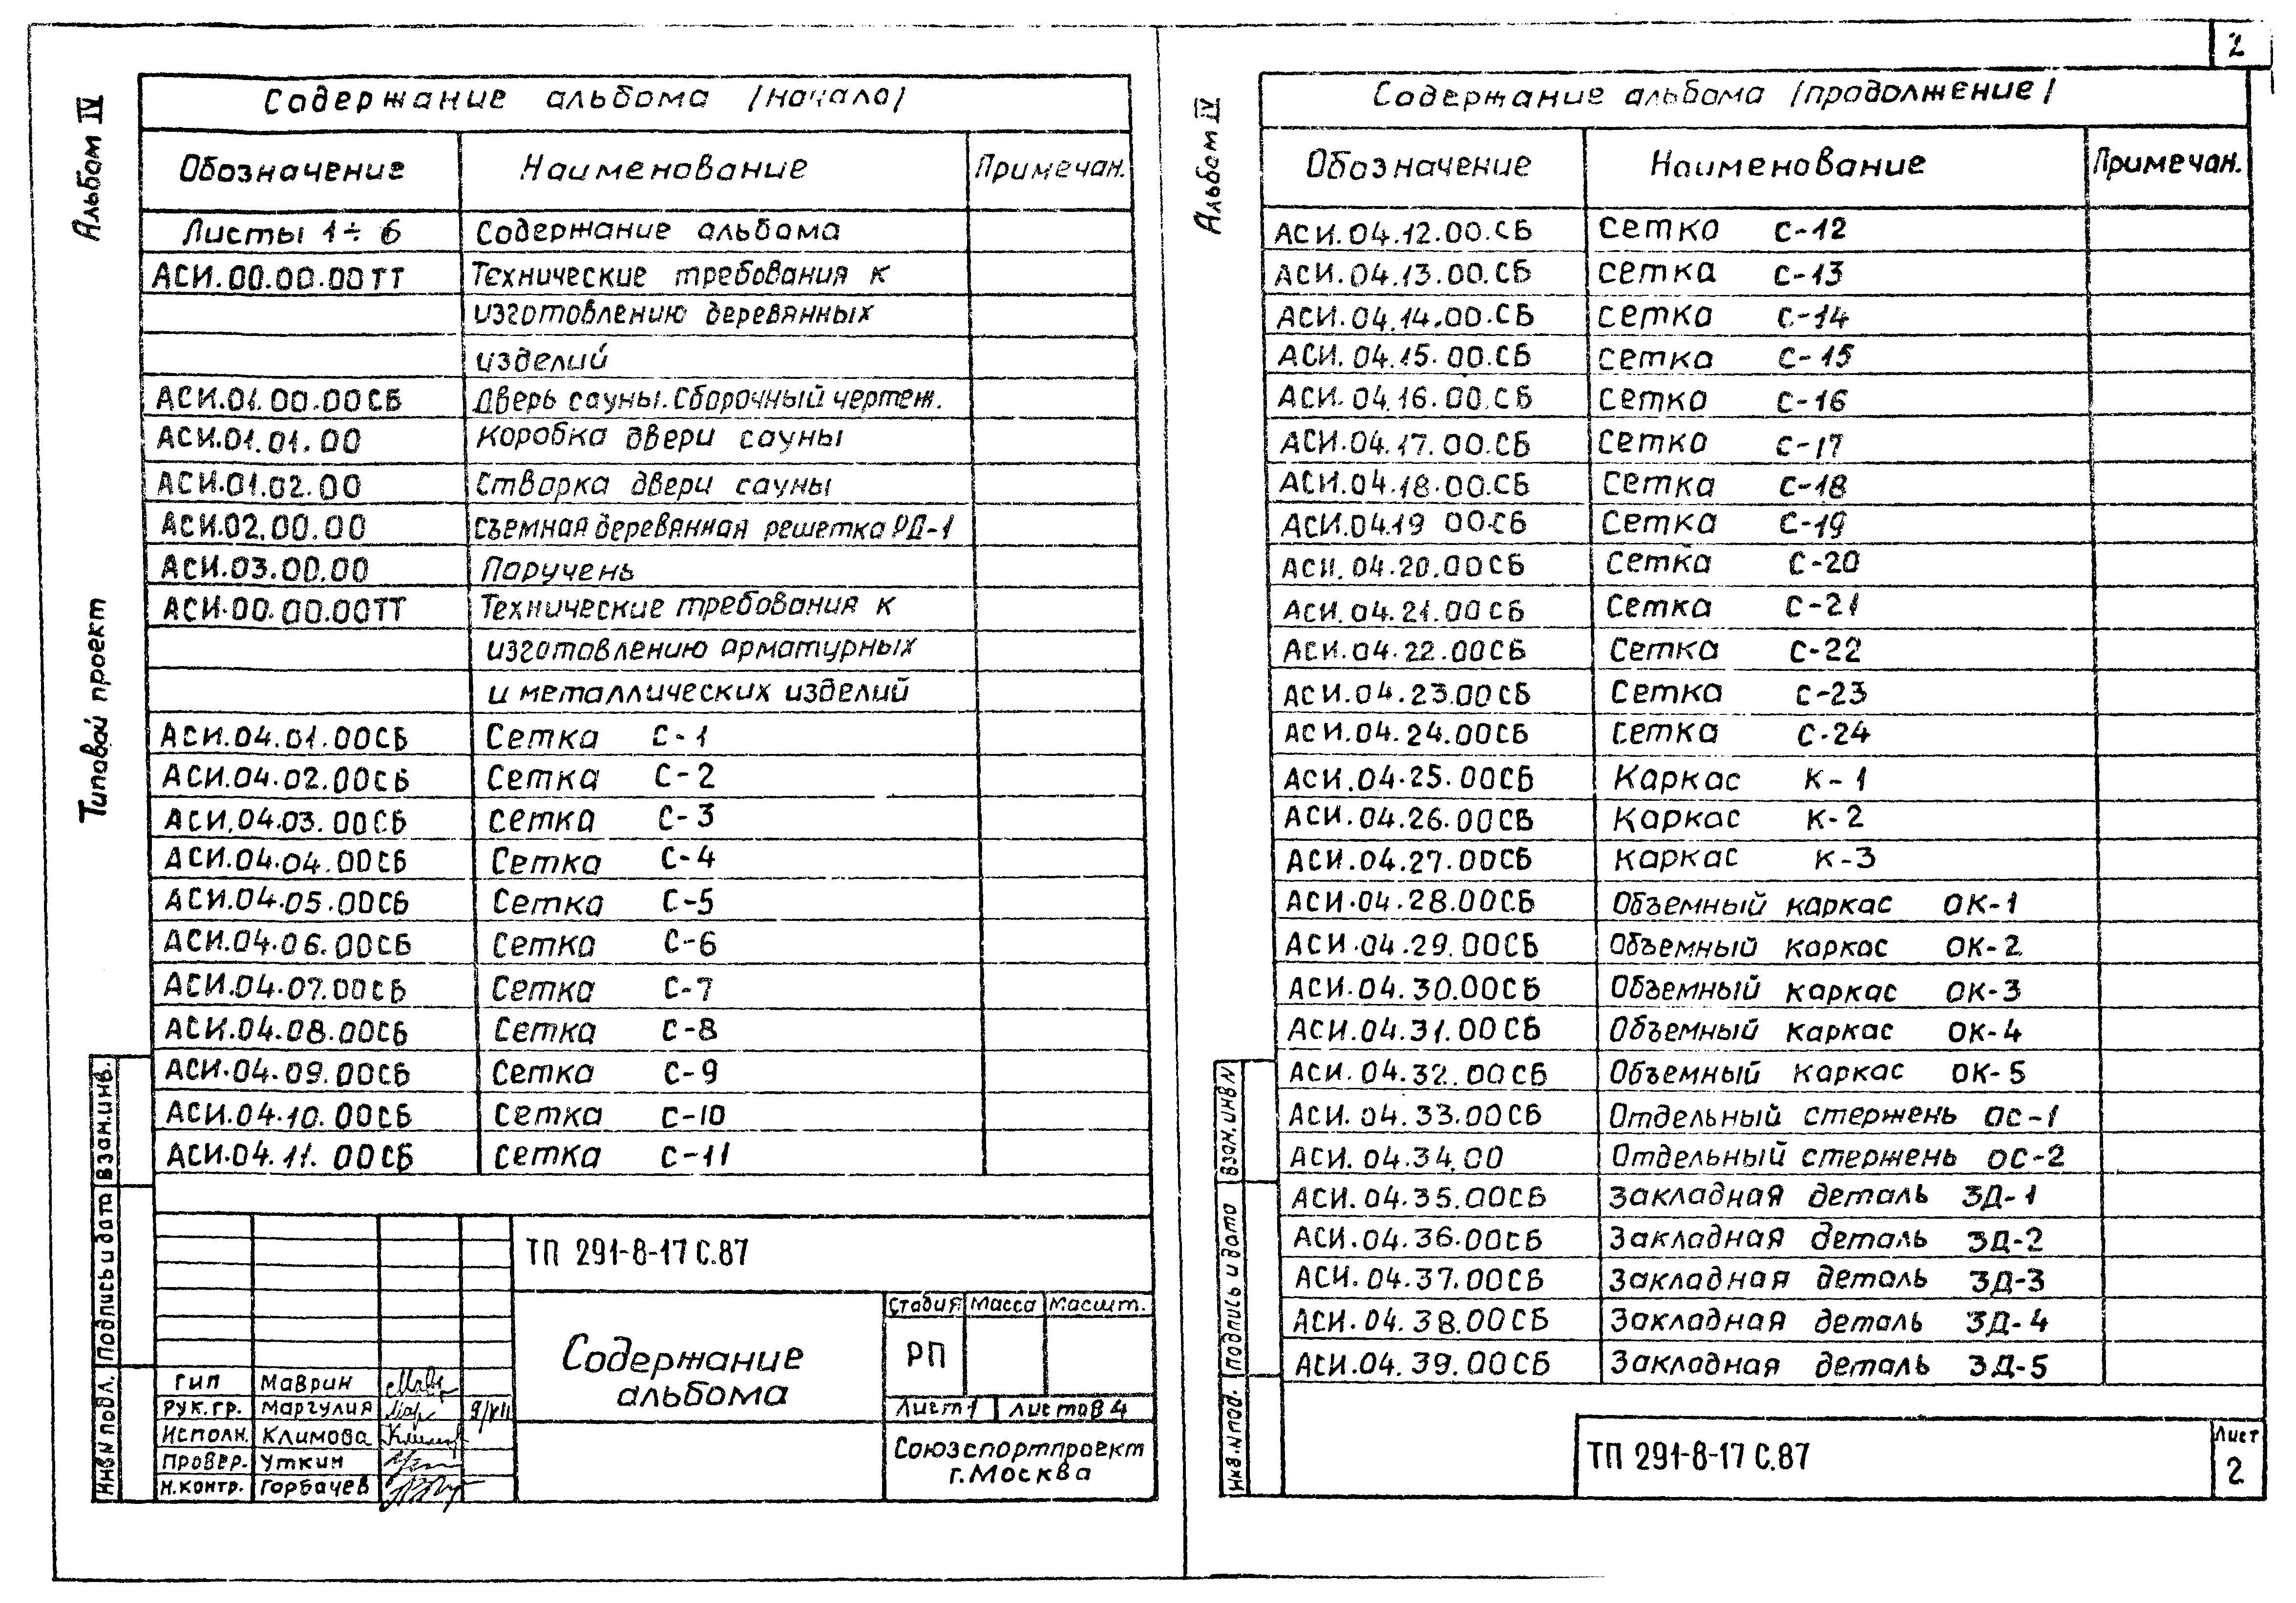 2
Альбом IV
Типовой проект
Содержание альбома /начало/
Обозначение Наименование Примечан.
Листы 1÷6 Содержание альбома
АСИ.00.00.00ТТ Технические требования к
изготовлению деревянных
изделий
АСИ.01.00.00СБ Дверь сауны. Сборочный чертеж.
АСИ.01.01.00 Коробка двери сауны
АСИ.01.02.00 Створка двери сауны
АСИ.02.00.00 Съемная деревянная решетка РД-1
АСИ.03.00.00 Поручень
АСИ.00.00.00ТТ Технические требования к
изготовлению арматурных
и металлических изделий
АСИ.04.01.00СБ Сетка С-1
АСИ.04.02.00СБ Сетка С-2
АСИ.04.03.00СБ Сетка С-3
АСИ.04.04.00СБ Сетка С-4
АСИ.04.05.00СБ Сетка С-5
АСИ.04.06.00СБ Сетка С-6
АСИ.04.07.00СБ Сетка С-7
АСИ.04.08.00СБ Сетка С-8
АСИ.04.09.00СБ Сетка С-9
АСИ.04.10.00СБ Сетка С-10
АСИ.04.11.00СБ Сетка С-11
ТП 291-8-17 С.87
Содержание
альбома
Стадия Масса Масшт.
РП
Лист 1 Листов 4
Союзспортпроект
г.Москва
ГИП Маврин
Рук.гр. Маргулия 9/XII
Исполн. Климова
Провер. Уткин
Н.контр. Горбачев
Взам.инв.
Подпись и дата
Инв N подл.
Альбом IV
Содержание альбома /продолжение/
Обозначение Наименование Примечан.
АСИ.04.12.00.СБ Сетка С-12
АСИ.04.13.00.СБ Сетка С-13
АСИ.04.14.00.СБ Сетка С-14
АСИ.04.15.00.СБ Сетка С-15
АСИ.04.16.00.СБ Сетка С-16
АСИ.04.17.00.СБ Сетка С-17
АСИ.04.18.00.СБ Сетка С-18
АСИ.04.19 00.СБ Сетка С-19
АСИ.04.20.00СБ Сетка С-20
АСИ.04.21.00СБ Сетка С-21
АСИ.04.22.00СБ Сетка С-22
АСИ.04.23.00СБ Сетка С-23
АСИ.04.24.00СБ Сетка С-24
АСИ.04.25.00СБ Каркас К-1
АСИ.04.26.00СБ Каркас К-2
АСИ.04.27.00СБ Каркас К-3
АСИ.04.28.00СБ Объемный каркас ОК-1
АСИ.04.29.00СБ Объемный каркас ОК-2
АСИ.04.30.00СБ Объемный каркас ОК-3
АСИ.04.31.00СБ Объемный каркас ОК-4
АСИ.04.32.00СБ Объемный каркас ОК-5
АСИ.04.33.00СБ Отдельный стержень ОС-1
АСИ.04.34.00 Отдельный стержень ОС-2
АСИ.04.35.00СБ Закладная деталь ЗД-1
АСИ.04.36.00СБ Закладная деталь ЗД-2
АСИ.04.37.00СБ Закладная деталь ЗД-3
АСИ.04.38.00СБ Закладная деталь ЗД-4
АСИ.04.39.00СБ Закладная деталь ЗД-5
ТП 291-8-17 С.87
Лист
2
Взам.инв N
Подпись и дата
Инв.N под.